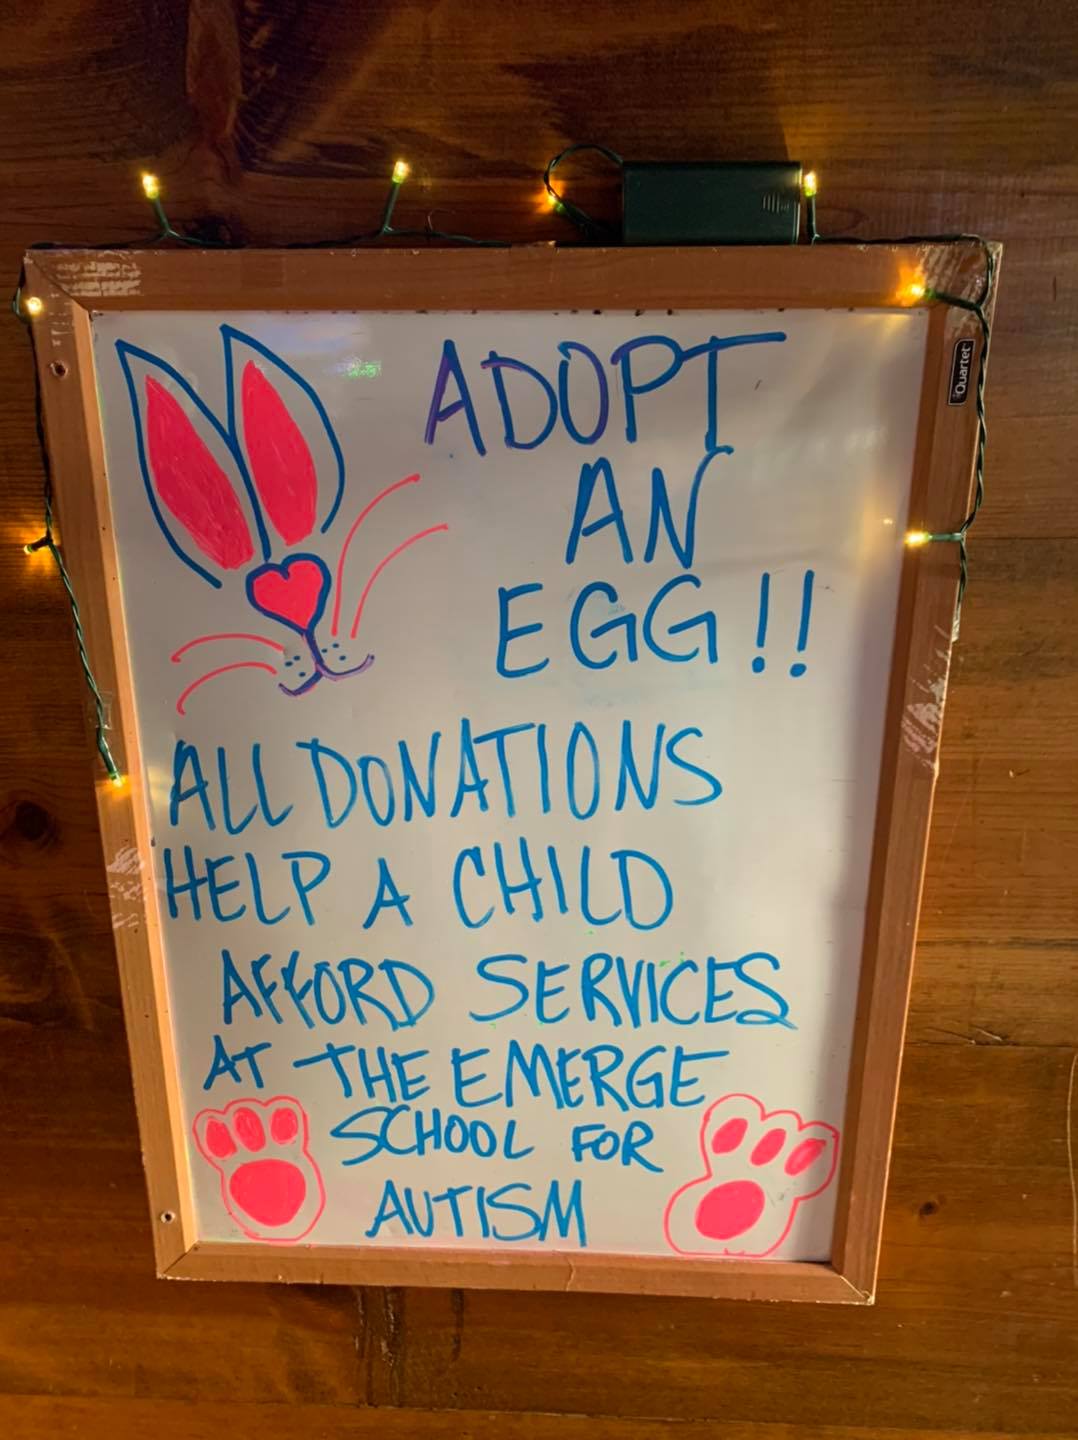 Quartet
ADOPT
AN
EGG!!
ALL DONATIONS
HELP A CHILD
AFFORD SERVICES
AT THE EMERGE
SCHOOL FOR
AUTISM